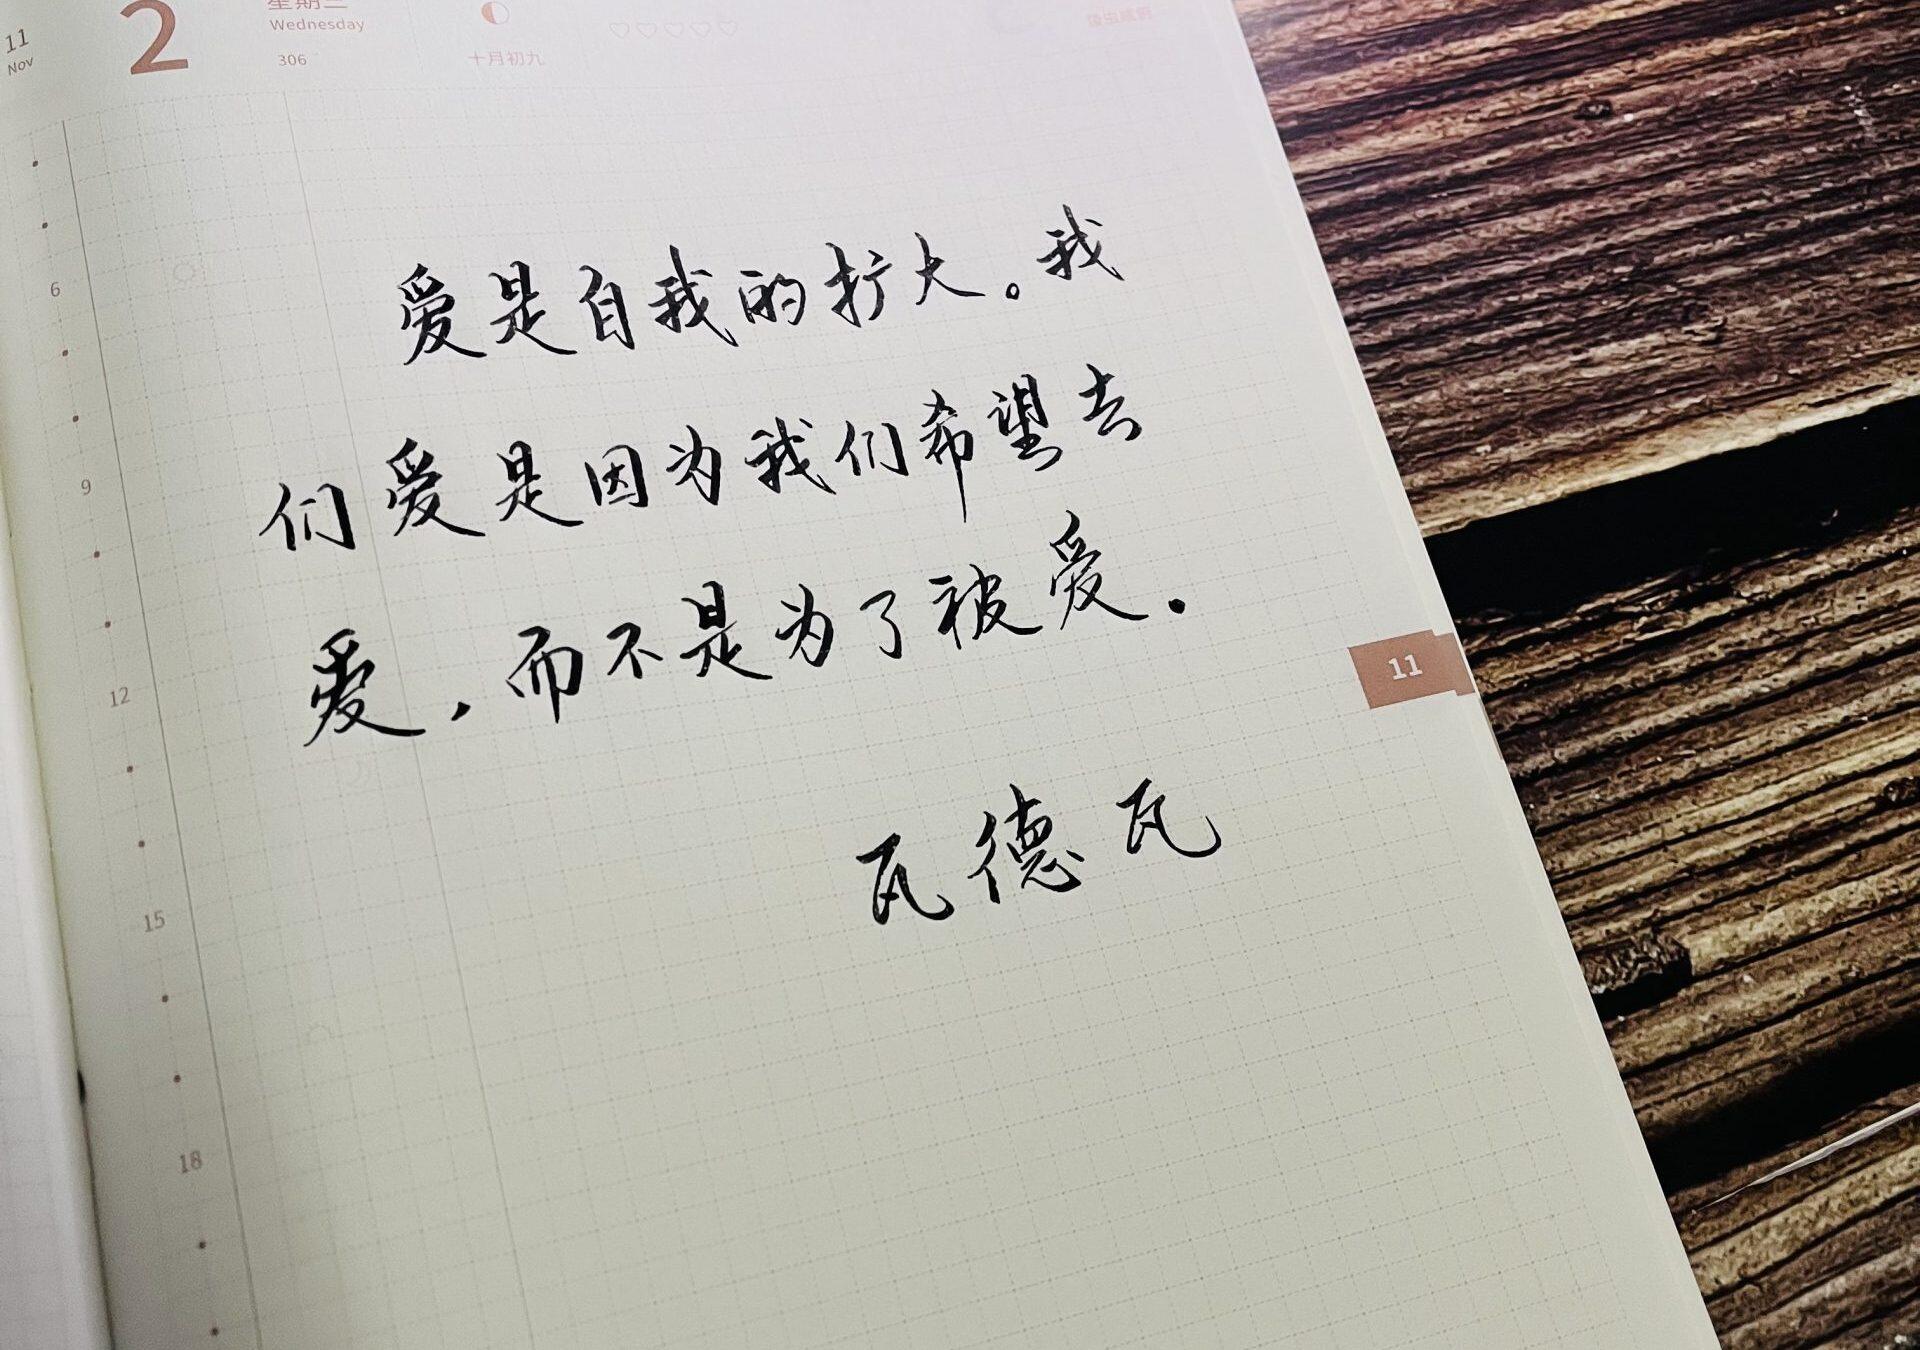 11
Nov
2
星期三
Wednesday
306
十月初九
爱是自我的扩大。我
们爱是因为我们希望去
爱，而不是为了被爱.
瓦德瓦
6
9
12
15
18
11